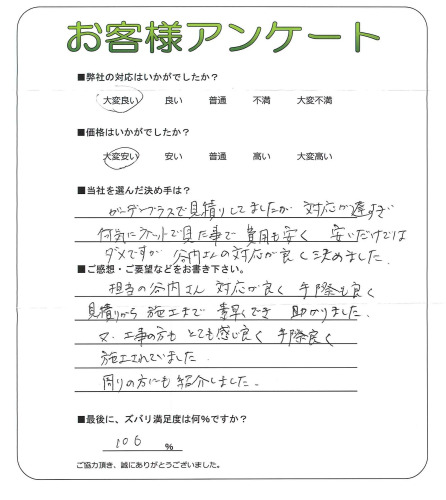 お客様アンケート
■弊社の対応はいかがでしたか？
大変良い 良い 普通 不満 大変不満
■価格はいかがでしたか？
大変安い 安い 普通 高い 大変高い
■当社を選んだ決め手は？
ガーデンプラスで見積りしてましたが 対応が遅すぎ
何気にネットで見た事で 費用も安く 安いだけでは
ダメですが 谷内さんの対応が良く決めました.
■ご感想・ご要望などをお書き下さい。
担当の谷内さん 対応が良く 手際も良く
見積りから 施工まで 素早くでき 助かりました.
又、工事の方も とても感じ良く 手際良く
施工されていました.
周りの方にも 紹介しました.
■最後に、ズバリ満足度は何%ですか？
100 %
ご協力頂き、誠にありがとうございました。